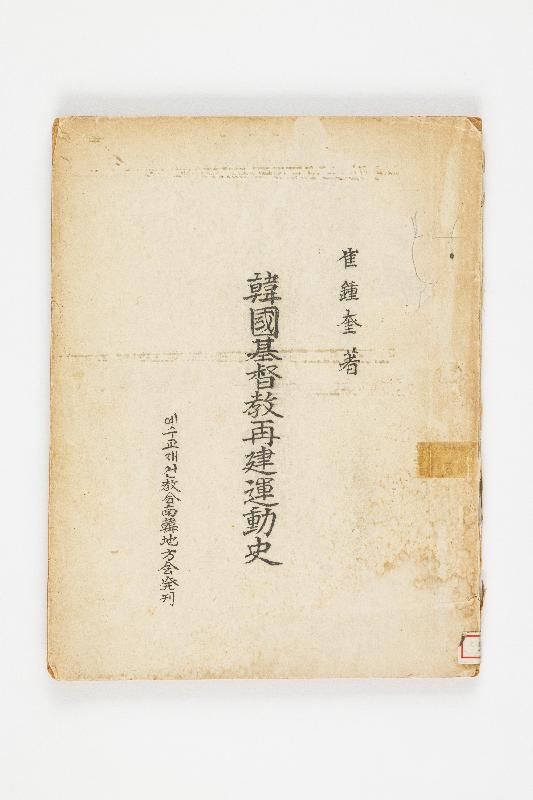 崔鍾奎 著
韓國基督教再建運動史
예수교재건敎会南韓地方会発刊